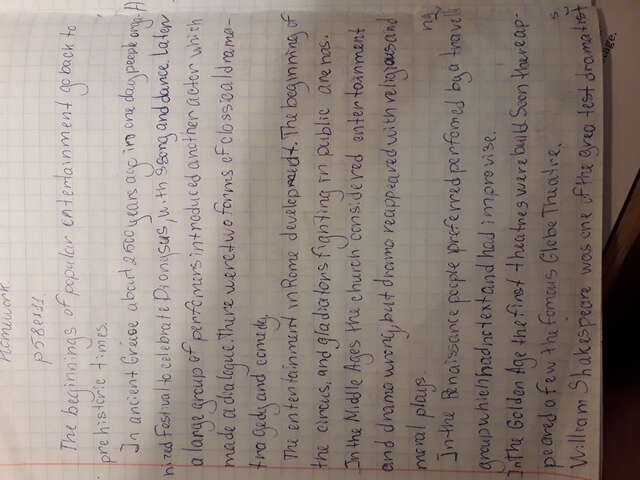 Homework.
p58ex11.
The beginnings of popular entertainment go back to
prehistoric times.
In ancient Greese about 2500 years ago in one day people orga-
nized festival to celebrate Dionysus, with song and dance. Later
a large group of perfomers introduced another actor which
made a dialogue. There were two forms of classical drama-
tragedy and comedy.
The entertainment in Rome development. The beginning of
the circus, and gladiators fighting in public arenas.
In the Middle Ages the church considered entertainment
and drama wrong, but drama reappeared with religious and
moral plays.
In the Renaissance people preferred perfomed by a traveling
group which had no text and had improvise.
In the Golden Age the first theatres were build. Soon there ap-
peared a few the famous Globe Theatre.
William Shakespeare was one of the greatest dramatists
age.